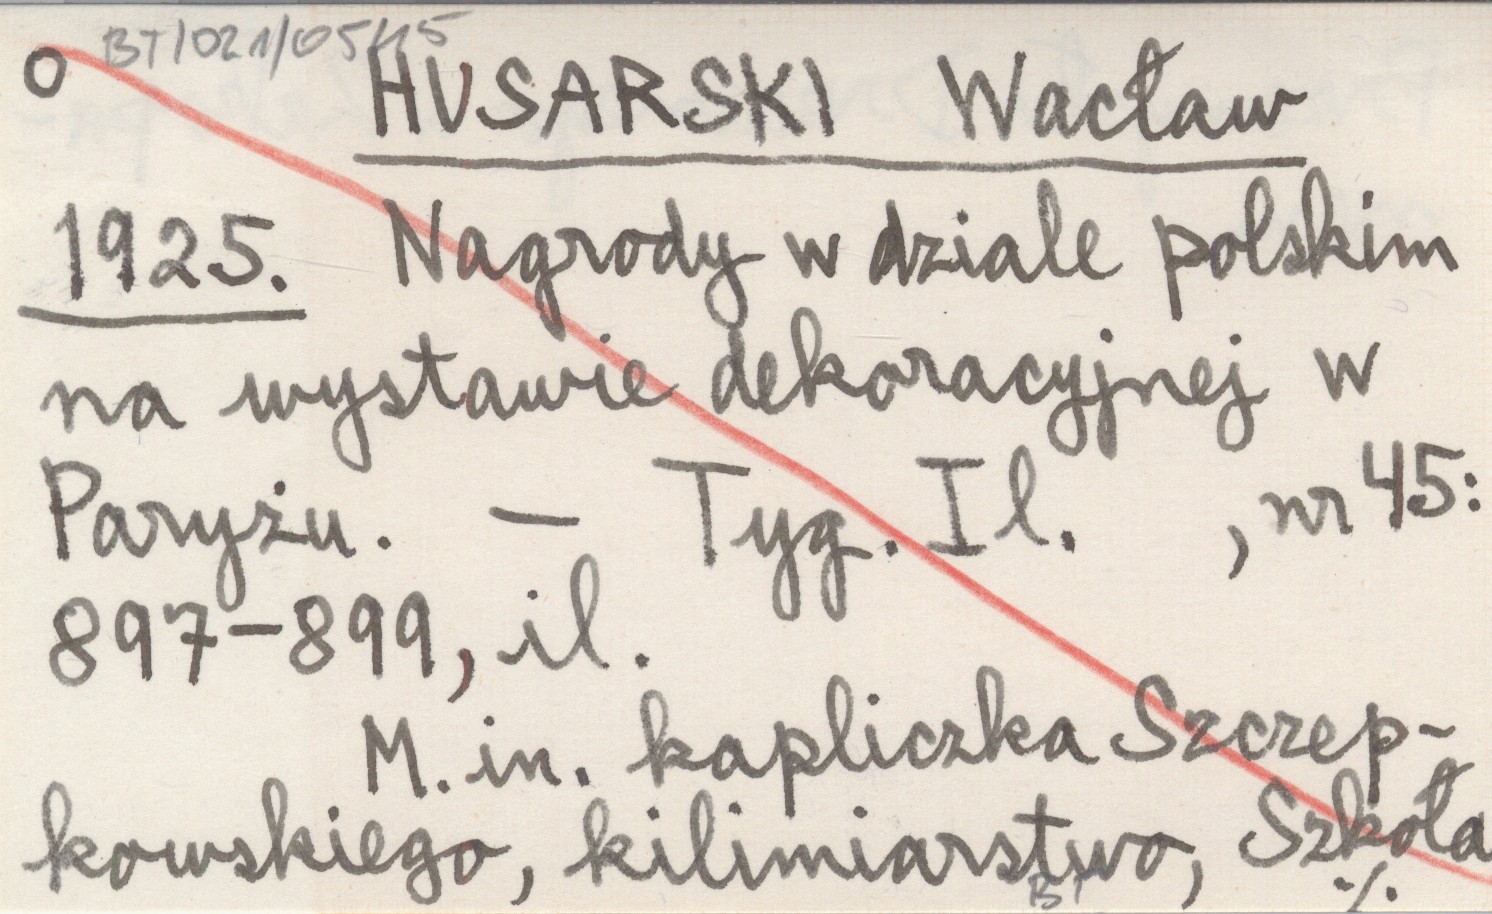 O BT/021/05/15
HUSARSKI Wacław
1925. Nagrody w dziale polskim
na wystawie dekoracyjnej w
Paryżu. — Tyg. Il. , nr 45:
897-899, il.
M. in. kapliczka Szczep-
kowskiego, kilimiarstwo, Szkoła
BT ./.